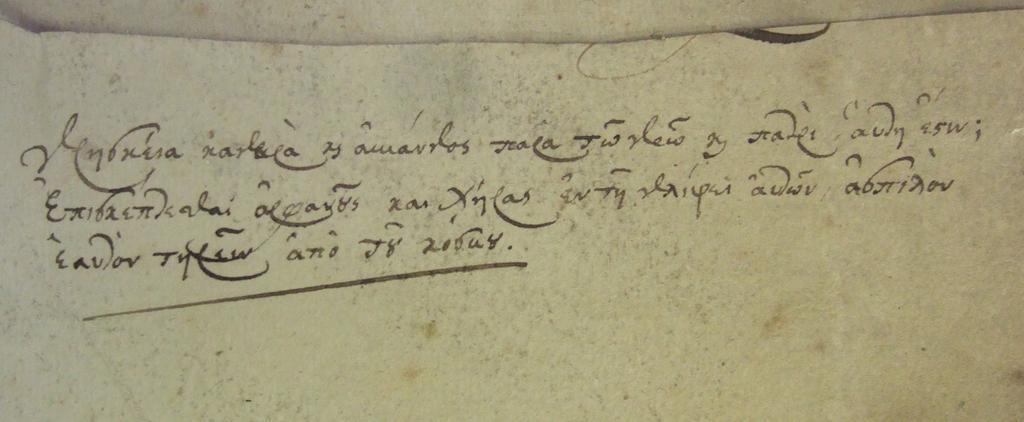 Θρησκεία καθαρὰ κ̀ ἀμίαντος παρα τῶ θεῶ κ̀ πατρι, ἁύτη ἐςιν;
Ἐπισκέπτεσθαι ὀρφανοῦς και χήρας ἐν τῆ θλίψει ἀυτῶν, ἄσπιλον
ἑαυτὸν τηρεῖν ἀπὸ τοῦ κόσμου.